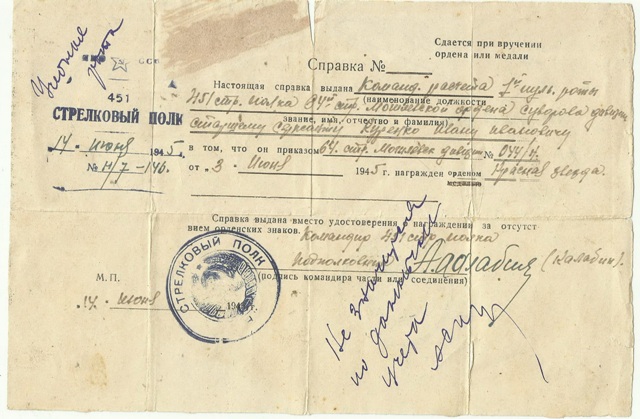 Сдается при вручении
ордена или медали
Учетная
рота
ССР
451
СТРЕЛКОВЫЙ ПОЛК
14. июня 1945.
№ Н/7-146.
Справка №
Настоящая справка выдана Команд. расчета 1й пул. роты
451 стр. полка 64й стр. Могилевской ордена Суворова дивизии
(наименование должности
старшему сержанту Куренко Ивану Ивановичу
звание, имя, отчество и фамилия)
в том, что он приказом 64. стр. Могилевск дивизии № 044/н.
от 3. Июня 1945 г. награжден орденом Красная звезда.
медалью
Справка выдана вместо удостоверения о награждении за отсутст
вием орденских знаков.
Командир 451 стр. полка
Подполковник (Калабин).
(подпись командира части или соединения)
М. П.
14. июня 194 г.
СТРЕЛКОВЫЙ ПОЛК
Не значится
по данным
учета